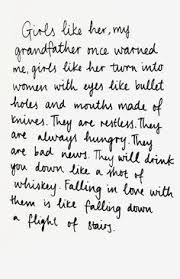 Girls like her, my
grandfather once warned
me, girls like her turn into
women with eyes like bullet
holes and mouths made of
knives. They are restless. They
are always hungry. They
are bad news. They will drink
you down like a shot of
whiskey. Falling in love with
them is like falling down
a flight of stairs.